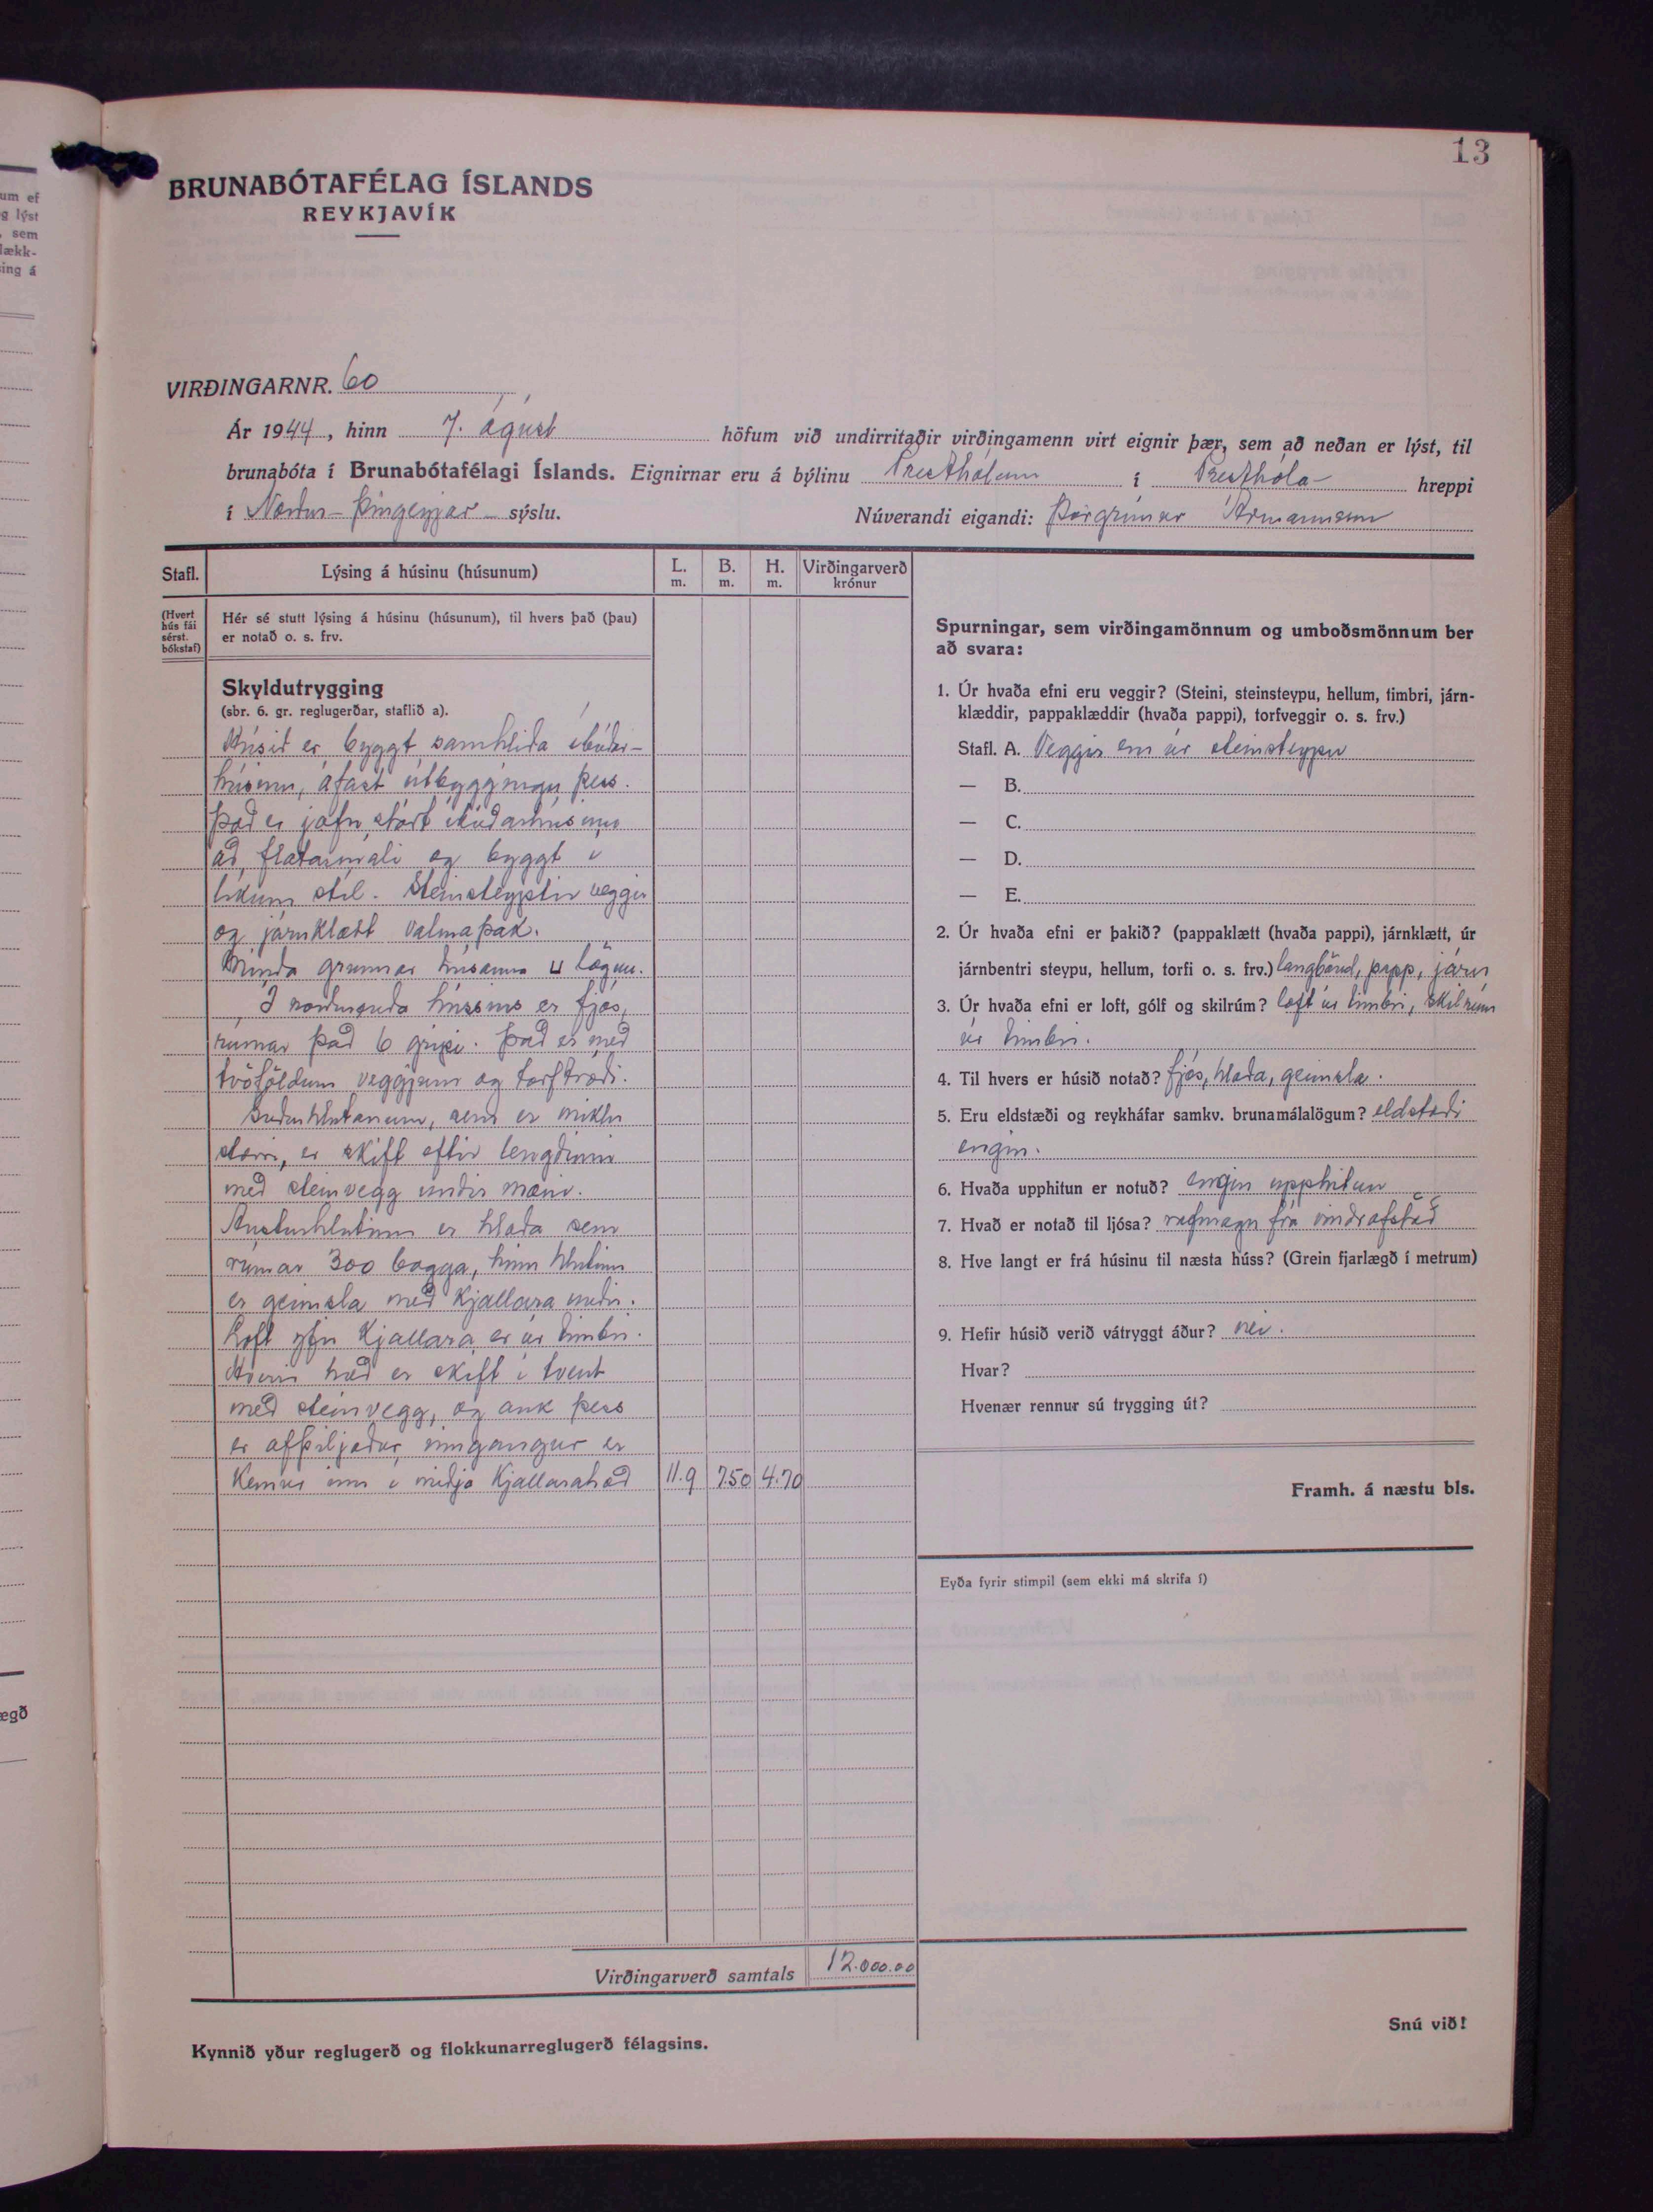 13
BRUNABÓTAFÉLAG ÍSLANDS
REYKJAVÍK
VIRÐINGARNR. 60
Ár 1944, hinn 7. ágúst höfum við undirritaðir virðingamenn virt eignir þær, sem að neðan er lýst, til
brunabóta í Brunabótafélagi Íslands. Eignirnar eru á býlinu Presthólum í Presthóla- hreppi
í Norður-Þingeyjar- sýslu. Núverandi eigandi: Þorgrímur Ármannsson
Stafl. Lýsing á húsinu (húsunum) L. m. B. m. H. m. Virðingarverð krónur
(Hvert hús fái sérst. bókstaf)
Hér sé stutt lýsing á húsinu (húsunum), til hvers það (þau)
er notað o. s. frv.
Skyldutrygging
(sbr. 6. gr. reglugerðar, staflið a).
Húsið er byggt samhliða íbúðar-
húsinu, áfast útbyggingu þess.
Það er jafn stórt íbúðarhúsinu
að flatarmáli og byggt í
líkum stíl. Steinsteyptir veggir
og járnklætt valmaþak.
Mynda grunnar húsanna u lögun.
Í norðurenda hússins er fjós,
rúmar það 6 gripi. Það er með
tvöföldum veggjum og torftróði.
Suðurhlutanum, sem er miklu
stærri, er skift eftir lengdinni
með steinvegg undir mæni.
Austurhlutinn er hlaða sem
rúmar 300 bagga, hinn hlutinn
er geimsla með kjallara undir.
Loft yfir kjallara er úr timbri.
Hverri hæð er skift í tvent
með steinvegg, og auk þess
er afþiljaður inngangur er
kemur inn í miðja kjallarahæð 11.9 7.50 4.70
Virðingarverð samtals 12.000.00
Kynnið yður reglugerð og flokkunarreglugerð félagsins.
Spurningar, sem virðingamönnum og umboðsmönnum ber
að svara:
1. Úr hvaða efni eru veggir? (Steini, steinsteypu, hellum, timbri, járn-
klæddir, pappaklæddir (hvaða pappi), torfveggir o. s. frv.)
Stafl. A. Veggir eru úr steinsteypu
— B.
— C.
— D.
— E.
2. Úr hvaða efni er þakið? (pappaklætt (hvaða pappi), járnklætt, úr
járnbentri steypu, hellum, torfi o. s. frv.) langbönd, papp, járn
3. Úr hvaða efni er loft, gólf og skilrúm? loft úr timbri, skilrúm
úr timbri.
4. Til hvers er húsið notað? fjós, hlaða, geimsla.
5. Eru eldstæði og reykháfar samkv. brunamálalögum? eldstæði
engin.
6. Hvaða upphitun er notuð? engin upphitun
7. Hvað er notað til ljósa? rafmagn frá vindrafstöð
8. Hve langt er frá húsinu til næsta húss? (Grein fjarlægð í metrum)
9. Hefir húsið verið vátryggt áður? nei.
Hvar?
Hvenær rennur sú trygging út?
Framh. á næstu bls.
Eyða fyrir stimpil (sem ekki má skrifa í)
Snú við!
um ef
g lýst
, sem
lækk-
sing á
ægð